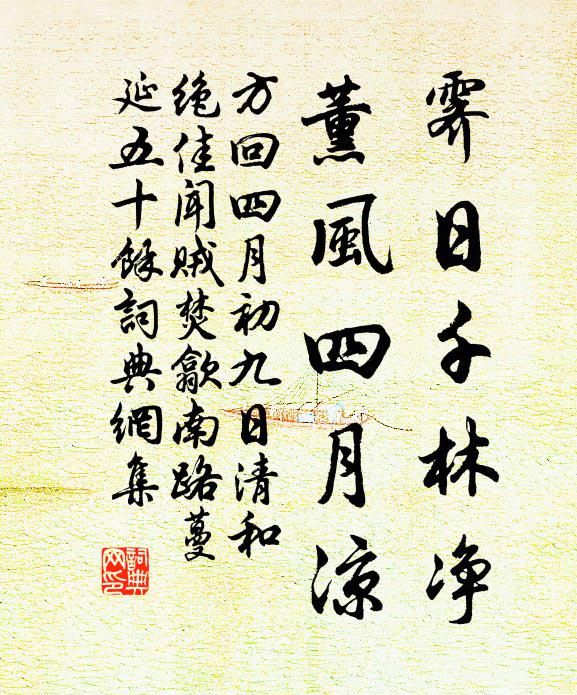 霽日千林净
薰風四月涼
方回四月初九日清和
绝佳闻贼焚歙南路蔓
延五十餘詞典網集
詞典
网印